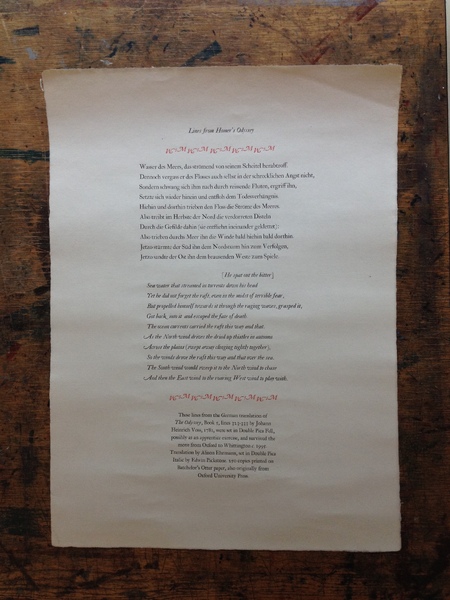 Lines from Homer's Odyssey
Wasser des Meers, das strömend von seinem Scheitel herabtroff.
Dennoch vergass er des Flosses auch selbst in der schrecklichen Angst nicht,
Sondern schwang sich ihm nach durch reissende Fluten, ergriff ihn,
Setzte sich wieder hinein und entfloh dem Todesverhängnis.
Hiehin und dorthin trieben den Floss die Ströme des Meeres.
Also treibt im Herbste der Nord die verdorrten Disteln
Durch die Gefilde dahin; sie entfliehn ineinander gekettet:
Also trieben durchs Meer ihn die Winde bald hiehin bald dorthin.
Jetzo stürmte der Süd ihn dem Nordsturm hin zum Verfolgen,
Jetzo sandte der Ost ihn dem brausenden West zum Spiele.
[He spat out the bitter]
Sea water that streamed in torrents down his head
Yet he did not forget the raft, even in the midst of terrible fear,
But propelled himself towards it through the raging waters, grasped it,
Got back into it and escaped the fate of death.
The ocean currents carried the raft this way and that.
As the North wind drives the dried up thistles in autumn
Across the plains (swept away clinging tightly together),
So the winds drove the raft this way and that over the sea.
The South wind would sweep it to the North wind to chase
And then the East wind to the roaring West wind to play with.
These lines from the German translation of
The Odyssey, Book 5, lines 323-332 by Johann
Heinrich Voss, 1781, were set in Double Pica Fell,
possibly as an apprentice exercise, and survived the
move from Oxford to Whittington c. 1990
Translation by Alison Ehrmann, set in Double Pica
Italic by Edwin Pickstone. 120 copies printed on
Batchelor's Otter paper, also originally from
Oxford University Press